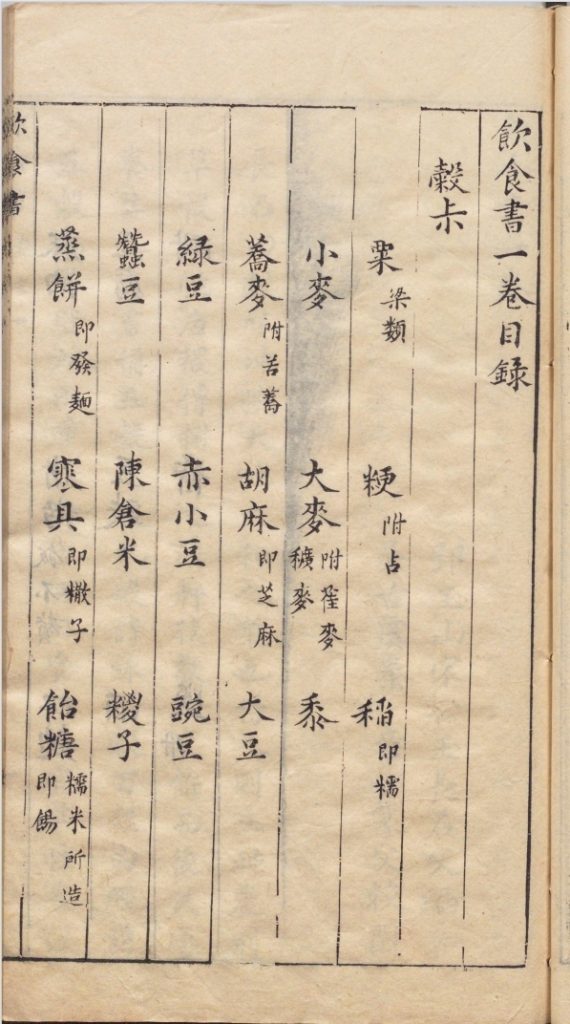 飲食書一卷目錄
穀尗
粟 梁類 粳 附占 稻 即糯
小麥 大麥 附雀麥 穬麥 黍
蕎麥 附苦蕎 胡麻 即芝麻 大豆
綠豆 赤小豆 豌豆
蠶豆 陳倉米 糉子
蒸餅 即發麵 寒具 即糤子 飴糖 糯米所造 即餳
飲食書